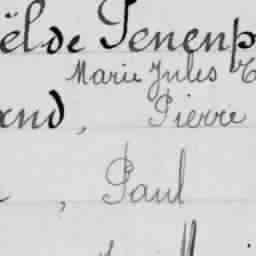 ëlde Penenp
Marie Jules
and, Pierre
, Paul